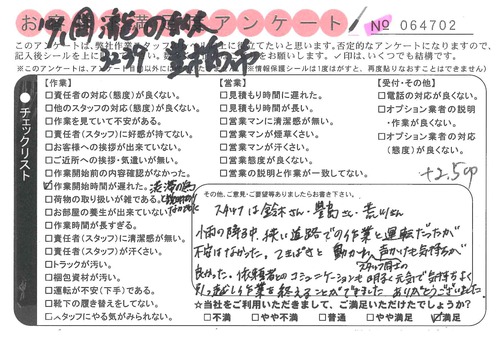 アンケート
№ 064702
このアンケートは、弊社作業
否定的なアンケートになりますので、
お願いします。✓印は、いくつでも結構です。
※このアンケートは、
情報保護シールは1度はがすと、再度貼りなおすことはできません)
チェックリスト
【作業】
□責任者の対応(態度)が良くない。
□他のスタッフの対応(態度)が良くない。
□作業を見ていて不安がある。
□責任者(スタッフ)に好感が持てない。
□お客様への挨拶が出来ていない。
□ご近所への挨拶・気遣いが無い。
□作業開始前の内容確認がなかった。
☑作業開始時間が遅れた。
□荷物の取り扱いが雑である。
□お部屋の養生が出来ていない
□作業時間が長すぎる。
□責任者(スタッフ)に清潔感が無い。
□責任者(スタッフ)が汗くさい。
□トラックが汚い。
□梱包資材が汚い。
□運転が不安(下手)である。
□靴下の履き替えをしてない。
□スタッフにやる気がみられない。
【営業】
□見積もり時間に遅れた。
□見積もり時間が長い。
□営業マンに清潔感が無い。
□営業マンが煙草くさい。
□営業マンが汗くさい。
□営業態度が良くない。
□営業の説明と作業が一致してない。
【受付・その他】
□電話の対応が良くない。
□オプション業者の説明
・作業が良くない。
□オプション業者の対応
(態度)が良くない。
その他、ご意見・ご要望等ありましたらお書き下さい。
スタッフは鈴木さん・豊島さん・荒川さん
小雨の降る中、狭い道路での作業と運転だったが
不安はなかった。てきぱきと動かれ、声かけも気持ちが
良かった。依頼者とのコミュニケーションも明るく元気で気持ちよく
スタッフ同士の
引っ越し作業を終えることができました ありがとうございました
☆当社をご利用いただきまして、ご満足いただけたでしょうか?
□不満 □やや不満 □普通 □やや満足 ☑満足